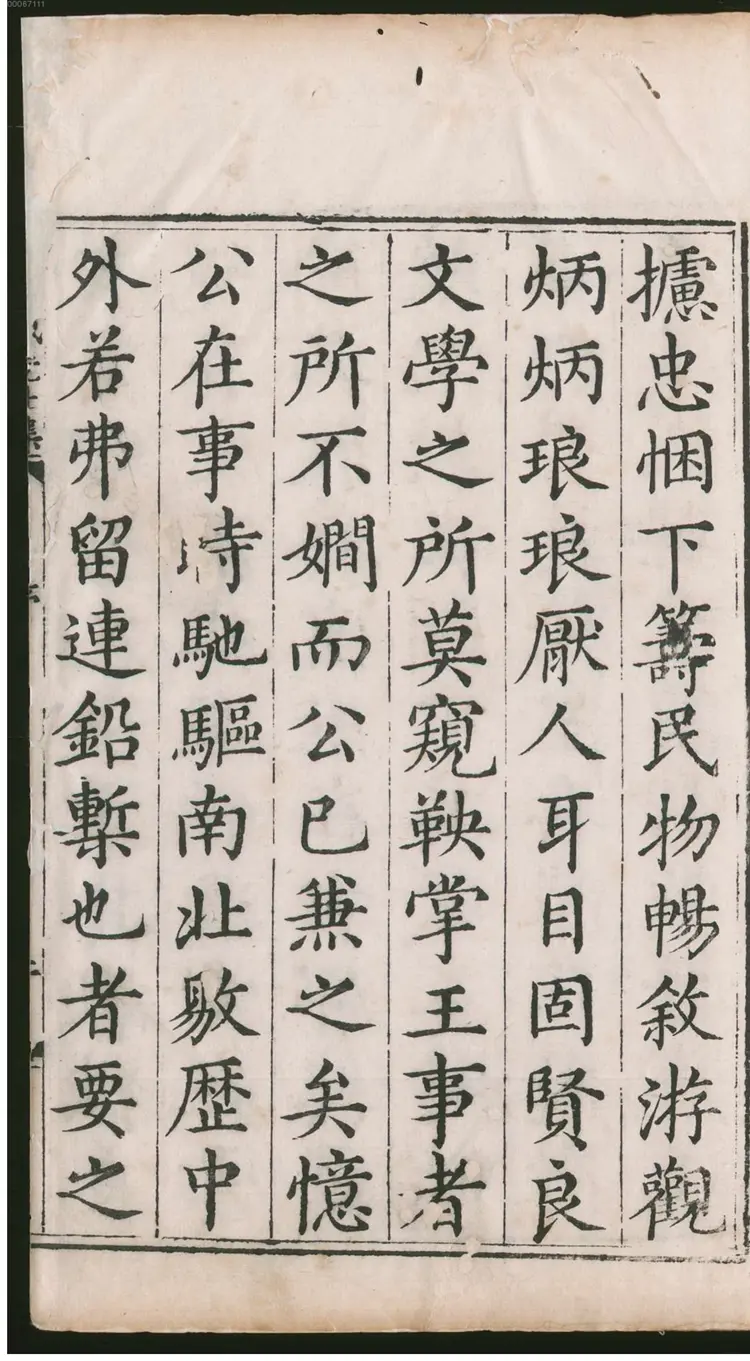 攄忠悃下籌民物暢敘游觀
炳炳琅琅厭人耳目固賢良
文學之所莫窺鞅掌王事者
之所不嫺而公已兼之矣憶
公在事時馳驅南北敭歷中
外若弗留連鉛槧也者要之
00067111